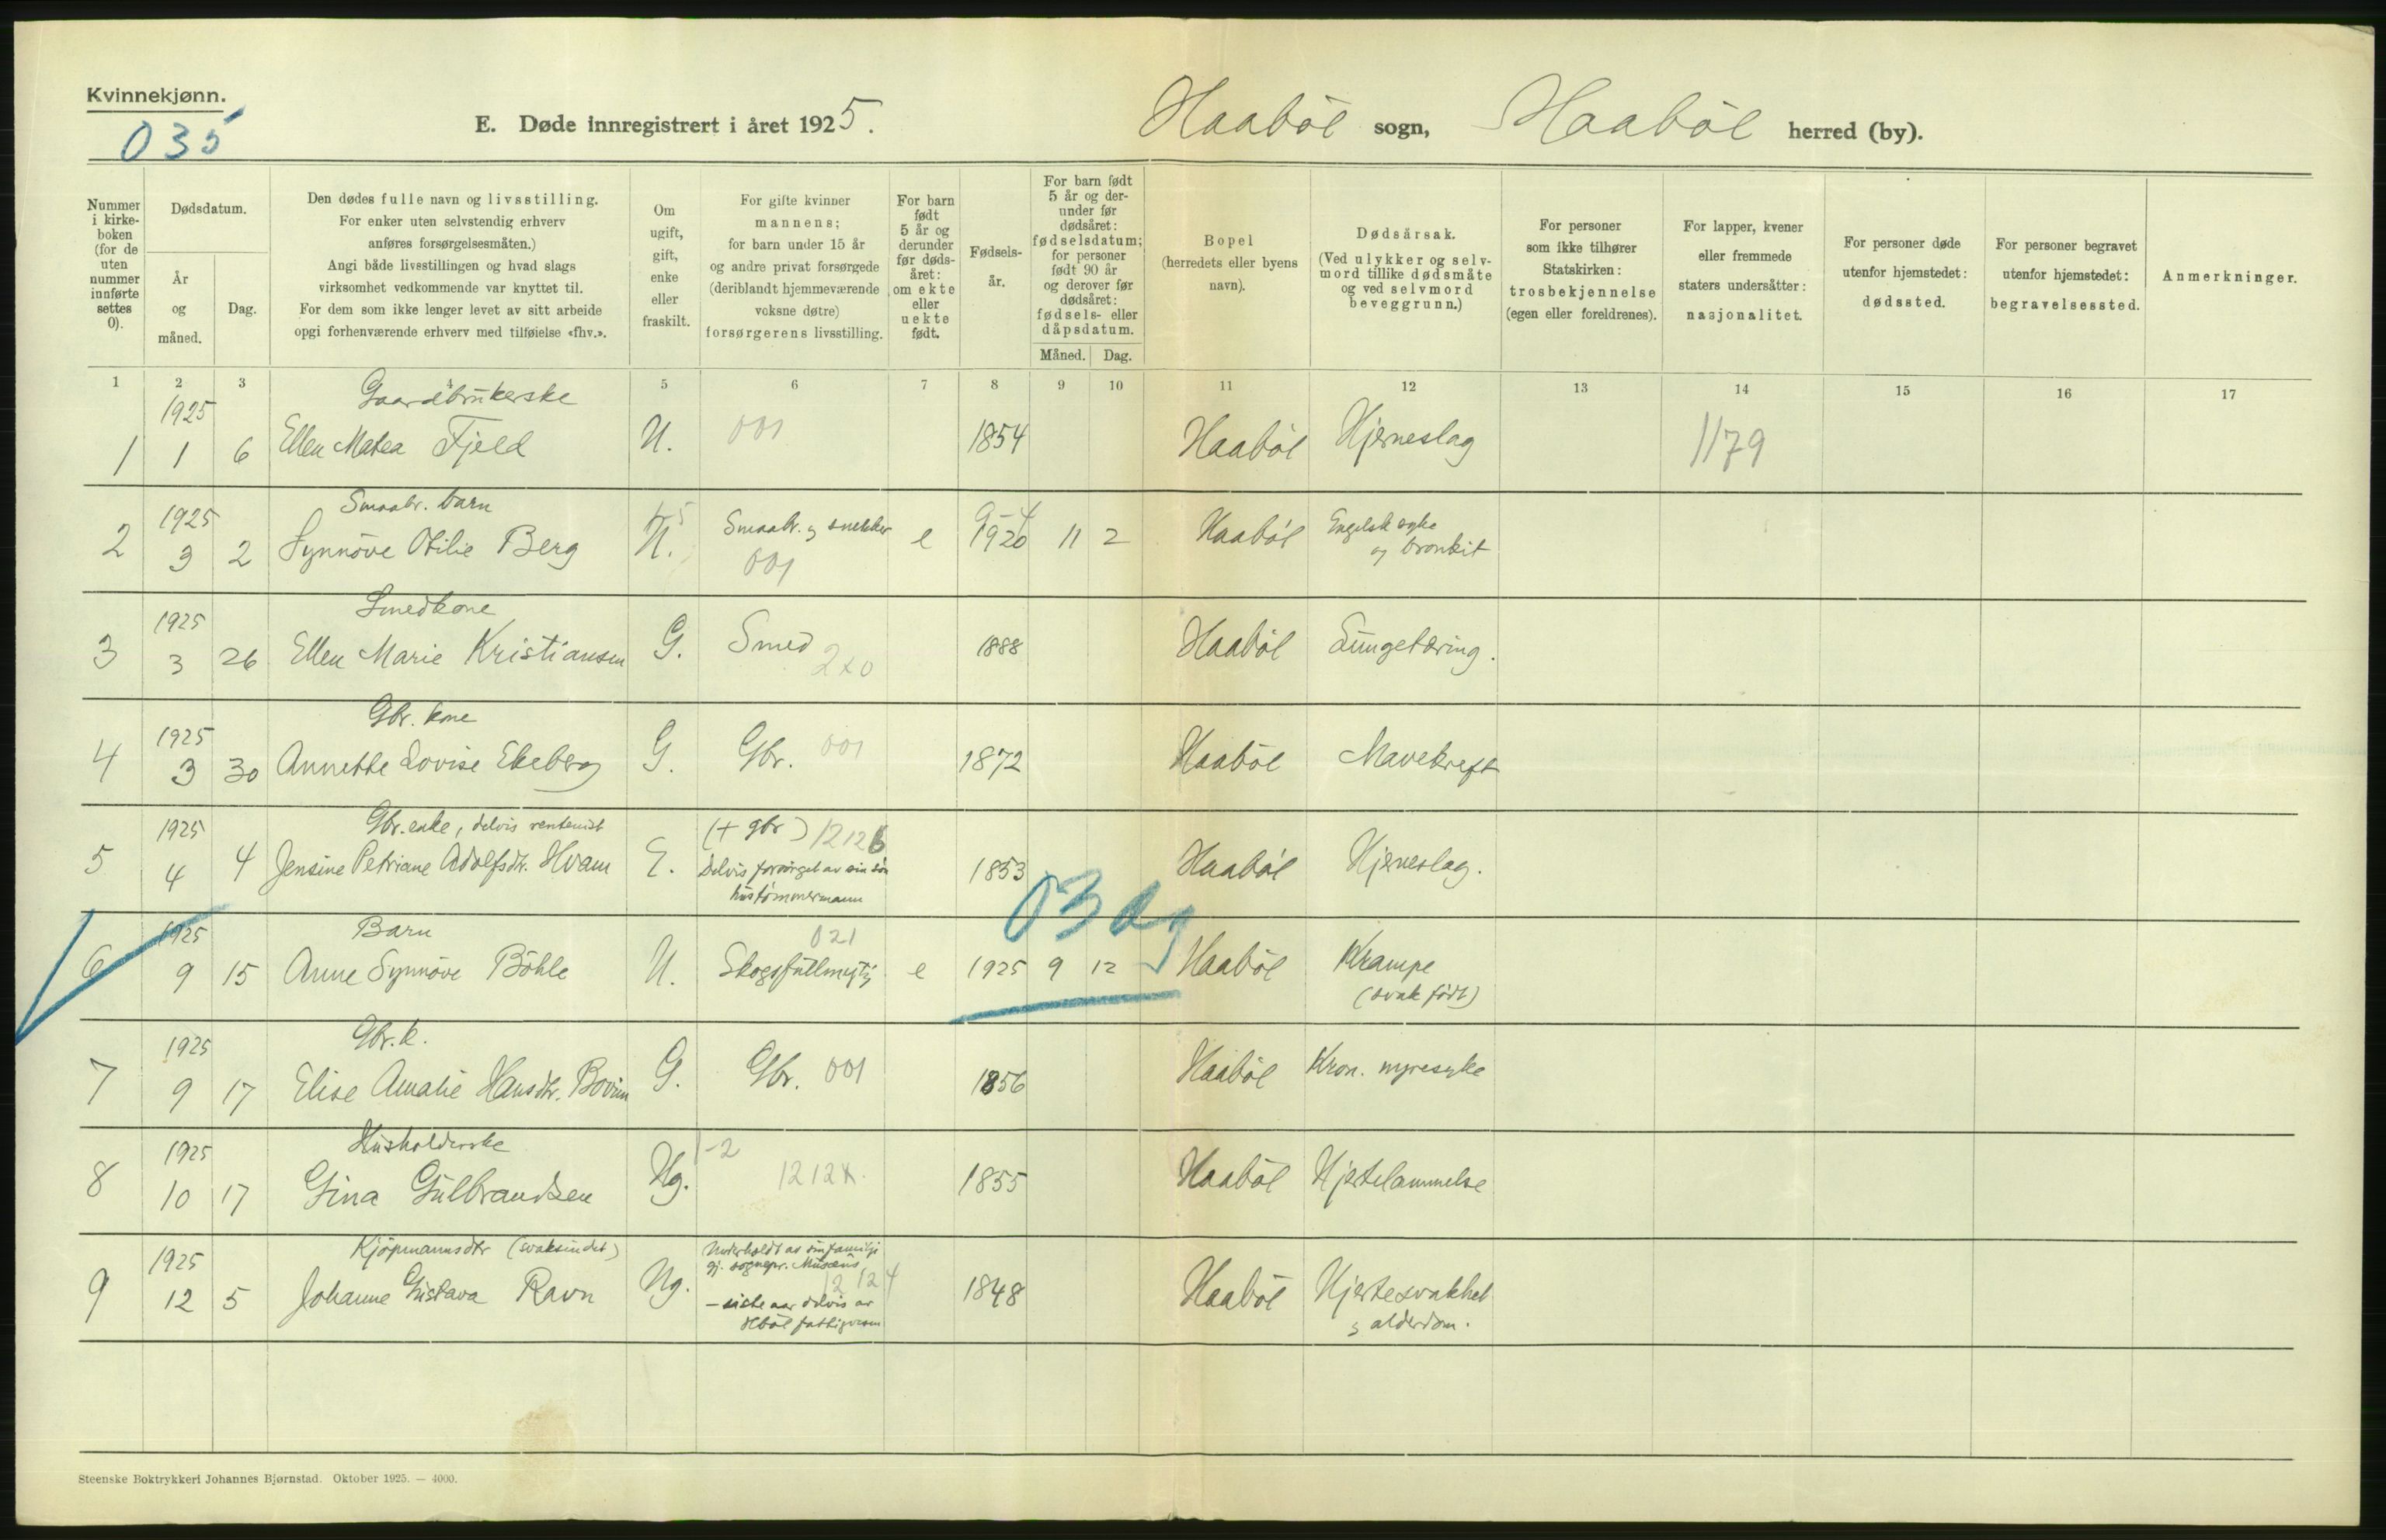 Kvinnekjønn.
035
E. Døde innregistrert i året 1925.
Haabøl sogn, Haabøl herred (by).
Nummer i kirkeboken (for de uten nummer innførte settes 0).
Dødsdatum.
År og måned.
Dag.
Den dødes fulle navn og livsstilling.
For enker uten selvstendig erhverv
anføres forsørgelsesmåten.)
Angi både livsstillingen og hvad slags
virksomhet vedkommende var knyttet til.
For dem som ikke lenger levet av sitt arbeide
opgi forhenværende erhverv med tilføielse «fhv.».
Om ugift, gift, enke eller fraskilt.
For gifte kvinner
mannens;
for barn under 15 år
og andre privat forsørgede
(deriblandt hjemmeværende
voksne døtre)
forsørgerens livsstilling.
For barn født 5 år og derunder før dødsåret: om ekte eller uekte født.
Fødselsår.
For barn født 5 år og derunder før dødsåret: fødselsdatum; for personer født 90 år og derover før dødsåret: fødsels- eller dåpsdatum.
Måned. Dag.
Bopel
(herredets eller byens
navn).
Dødsårsak.
(Ved ulykker og selvmord tillike dødsmåte og ved selvmord beveggrunn.)
For personer
som ikke tilhører
Statskirken:
trosbekjennelse
(egen eller foreldrenes).
For lapper, kvener
eller fremmede
staters undersåtter:
nasjonalitet.
For personer døde
utenfor hjemstedet:
dødssted.
For personer begravet
utenfor hjemstedet:
begravelsessted.
Anmerkninger.
1 2 3 4 5 6 7 8 9 10 11 12 13 14 15 16 17
1925 Gaardbrukerske
1 1 6 Ellen Matea Fjeld U. 001 1854 Haabøl Hjerneslag 1179
1925 Smaabr. barn Smaabr. og snekker 9-4 Engelsk syke
2 3 2 Synnöve Otilie Berg U. 001 e 1920 11 2 Haabøl og bronkit
1925 Smedkone
3 3 26 Ellen Marie Kristiansen G. Smed 2x0 1888 Haabøl Lungetæring.
1925 Gbr. kone
4 3 30 Annette Lovise Ekeberg G. Gbr. 001 1872 Haabøl Mavekreft
1925 Gbr. enke, delvis rentenist (+ gbr) 1212b
5 4 4 Jensine Petriane Adolfsdtr. Hvam E. Delvis forsörget av sin sön 1853 Haabøl Hjerneslag.
hustømmermann
03 dg
1925 Barn 021
6 9 15 Anne Synnöve Böhle U. Skogsfullmegtig e 1925 9 12 Haabøl Krampe
(svak født)
1925 Gbr. k.
7 9 17 Elise Amalie Hansdtr. Bovim G. Gbr. 001 1856 Haabøl Kron. nyresyke
1925 Husholderske 1-2
8 10 17 Gina Gulbrandsen Ug. 1212x. 1855 Haabøl Hjertelammelse
1925 Kjöpmannsdtr (svaksindet) Underholdt av sin familie
gj. sognepr. Musæus
12 124
9 12 5 Johanne Gustava Ravn Ug. – siste aar delvis av 1848 Haabøl Hjertesvakhet
Hböl fattigvesen og alderdom.
Steenske Boktrykkeri Johannes Bjørnstad. Oktober 1925. — 4000.